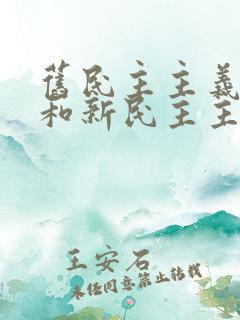 舊民主主義
和新民主主
王安石
未经同意禁止转载